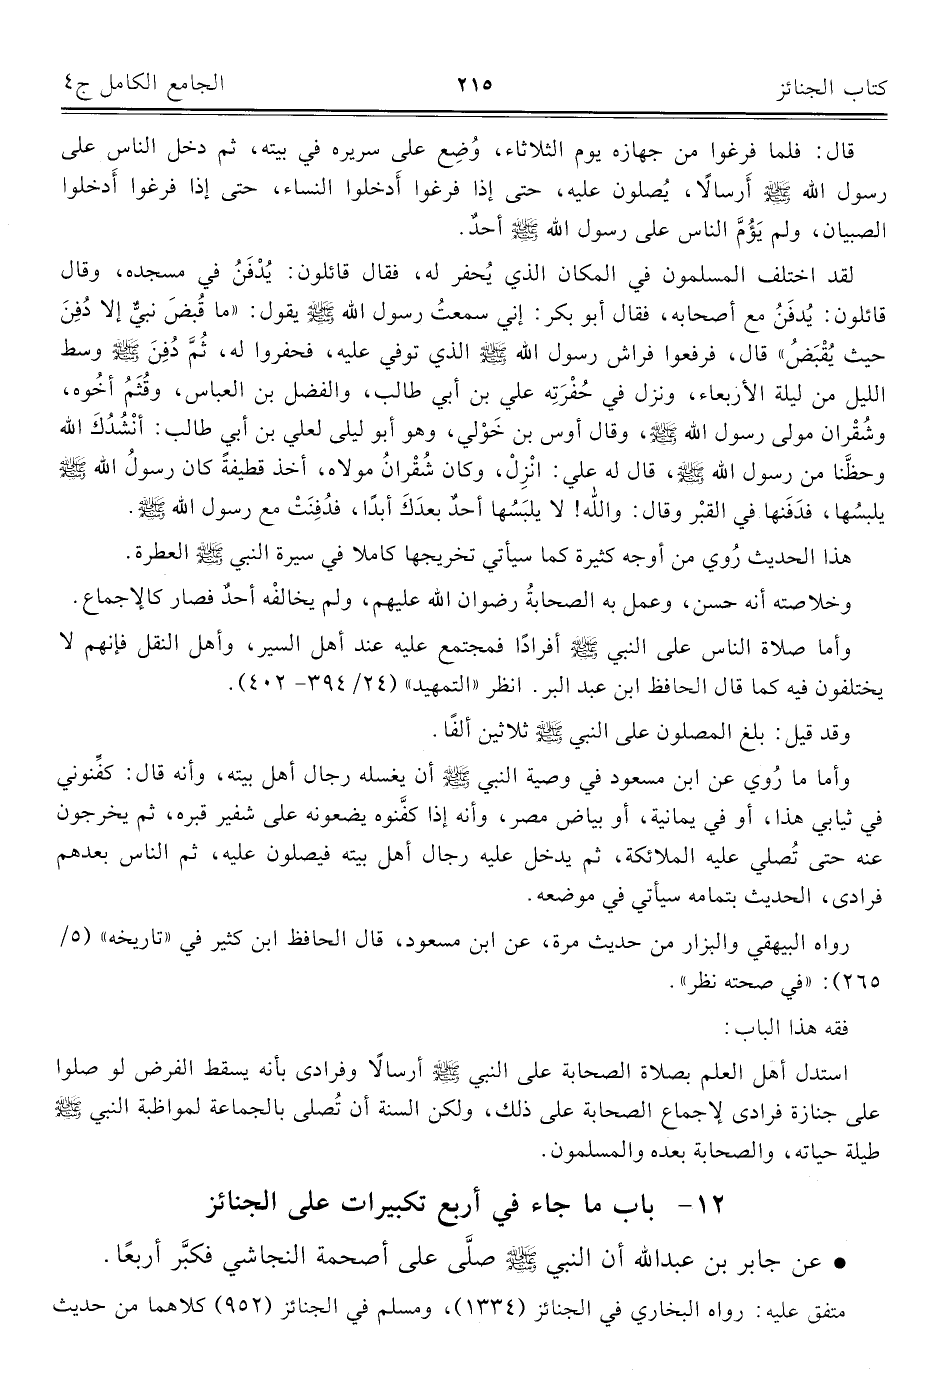 كتاب الجنائز ٢١٥ الجامع الكامل ج٤
قال: فلما فرغوا من جهازه يوم الثلاثاء، وُضِع على سريره في بيته، ثم دخل الناس على
رسول الله ﷺ أَرسالًا، يُصلون عليه، حتى إذا فرغوا أَدخلوا النساء، حتى إذا فرغوا أَدخلوا
الصبيان، ولم يَؤُمَّ الناس على رسول الله ﷺ أحدٌ.
لقد اختلف المسلمون في المكان الذي يُحفر له، فقال قائلون: يُدْفَنُ في مسجده، وقال
قائلون: يُدفَنُ مع أصحابه، فقال أبو بكر: إني سمعتُ رسول الله ﷺ يقول: «ما قُبضَ نبيٌّ إلا دُفِنَ
حيث يُقْبَضُ» قال، فرفعوا فراش رسول الله ﷺ الذي توفي عليه، فحفروا له، ثُمَّ دُفِنَ ﷺ وسط
الليل من ليلة الأربعاء، ونزل في حُفْرَتِه علي بن أبي طالب، والفضل بن العباس، وقُثَمُ أخُوه،
وشُقْران مولى رسول الله ﷺ، وقال أوس بن خَوْلي، وهو أبو ليلى لعلي بن أبي طالب: أنْشُدُكَ الله
وحظَّنا من رسول الله ﷺ، قال له علي: انْزِلْ، وكان شُقْرانُ مولاه، أخذ قطيفةً كان رسولُ الله ﷺ
يلبسُها، فدَفَنها في القبْر وقال: واللهِ! لا يلبَسُها أحدٌ بعدَكَ أبدًا، فدُفِنَتْ مع رسول الله ﷺ.
هذا الحديث رُوي من أوجه كثيرة كما سيأتي تخريجها كاملا في سيرة النبي ﷺ العطرة.
وخلاصته أنه حسن، وعمل به الصحابةُ رضوان الله عليهم، ولم يخالفْه أحدٌ فصار كالإجماع.
وأما صلاة الناس على النبي ﷺ أفرادًا فمجتمع عليه عند أهل السير، وأهل النقل فإنهم لا
يختلفون فيه كما قال الحافظ ابن عبد البر. انظر «التمهيد» (٢٤/ ٣٩٤- ٤٠٢).
وقد قيل: بلغ المصلون على النبي ﷺ ثلاثين ألفًا.
وأما ما رُوي عن ابن مسعود في وصية النبي ﷺ أن يغسله رجال أهل بيته، وأنه قال: كفِّنوني
في ثيابي هذا، أو في يمانية، أو بياض مصر، وأنه إذا كفَّنوه يضعونه على شفير قبره، ثم يخرجون
عنه حتى تُصلي عليه الملائكة، ثم يدخل عليه رجال أهل بيته فيصلون عليه، ثم الناس بعدهم
فرادى، الحديث بتمامه سيأتي في موضعه.
رواه البيهقي والبزار من حديث مرة، عن ابن مسعود، قال الحافظ ابن كثير في «تاريخه» (٥/
٢٦٥): «في صحته نظر».
فقه هذا الباب:
استدل أهل العلم بصلاة الصحابة على النبي ﷺ أرسالًا وفرادى بأنه يسقط الفرض لو صلوا
على جنازة فرادى لإجماع الصحابة على ذلك، ولكن السنة أن تُصلى بالجماعة لمواظبة النبي ﷺ
طيلة حياته، والصحابة بعده والمسلمون.
١٢- باب ما جاء في أربع تكبيرات على الجنائز
• عن جابر بن عبدالله أن النبي ﷺ صلَّى على أصحمة النجاشي فكبَّر أربعًا.
متفق عليه: رواه البخاري في الجنائز (١٣٣٤)، ومسلم في الجنائز (٩٥٢) كلاهما من حديث